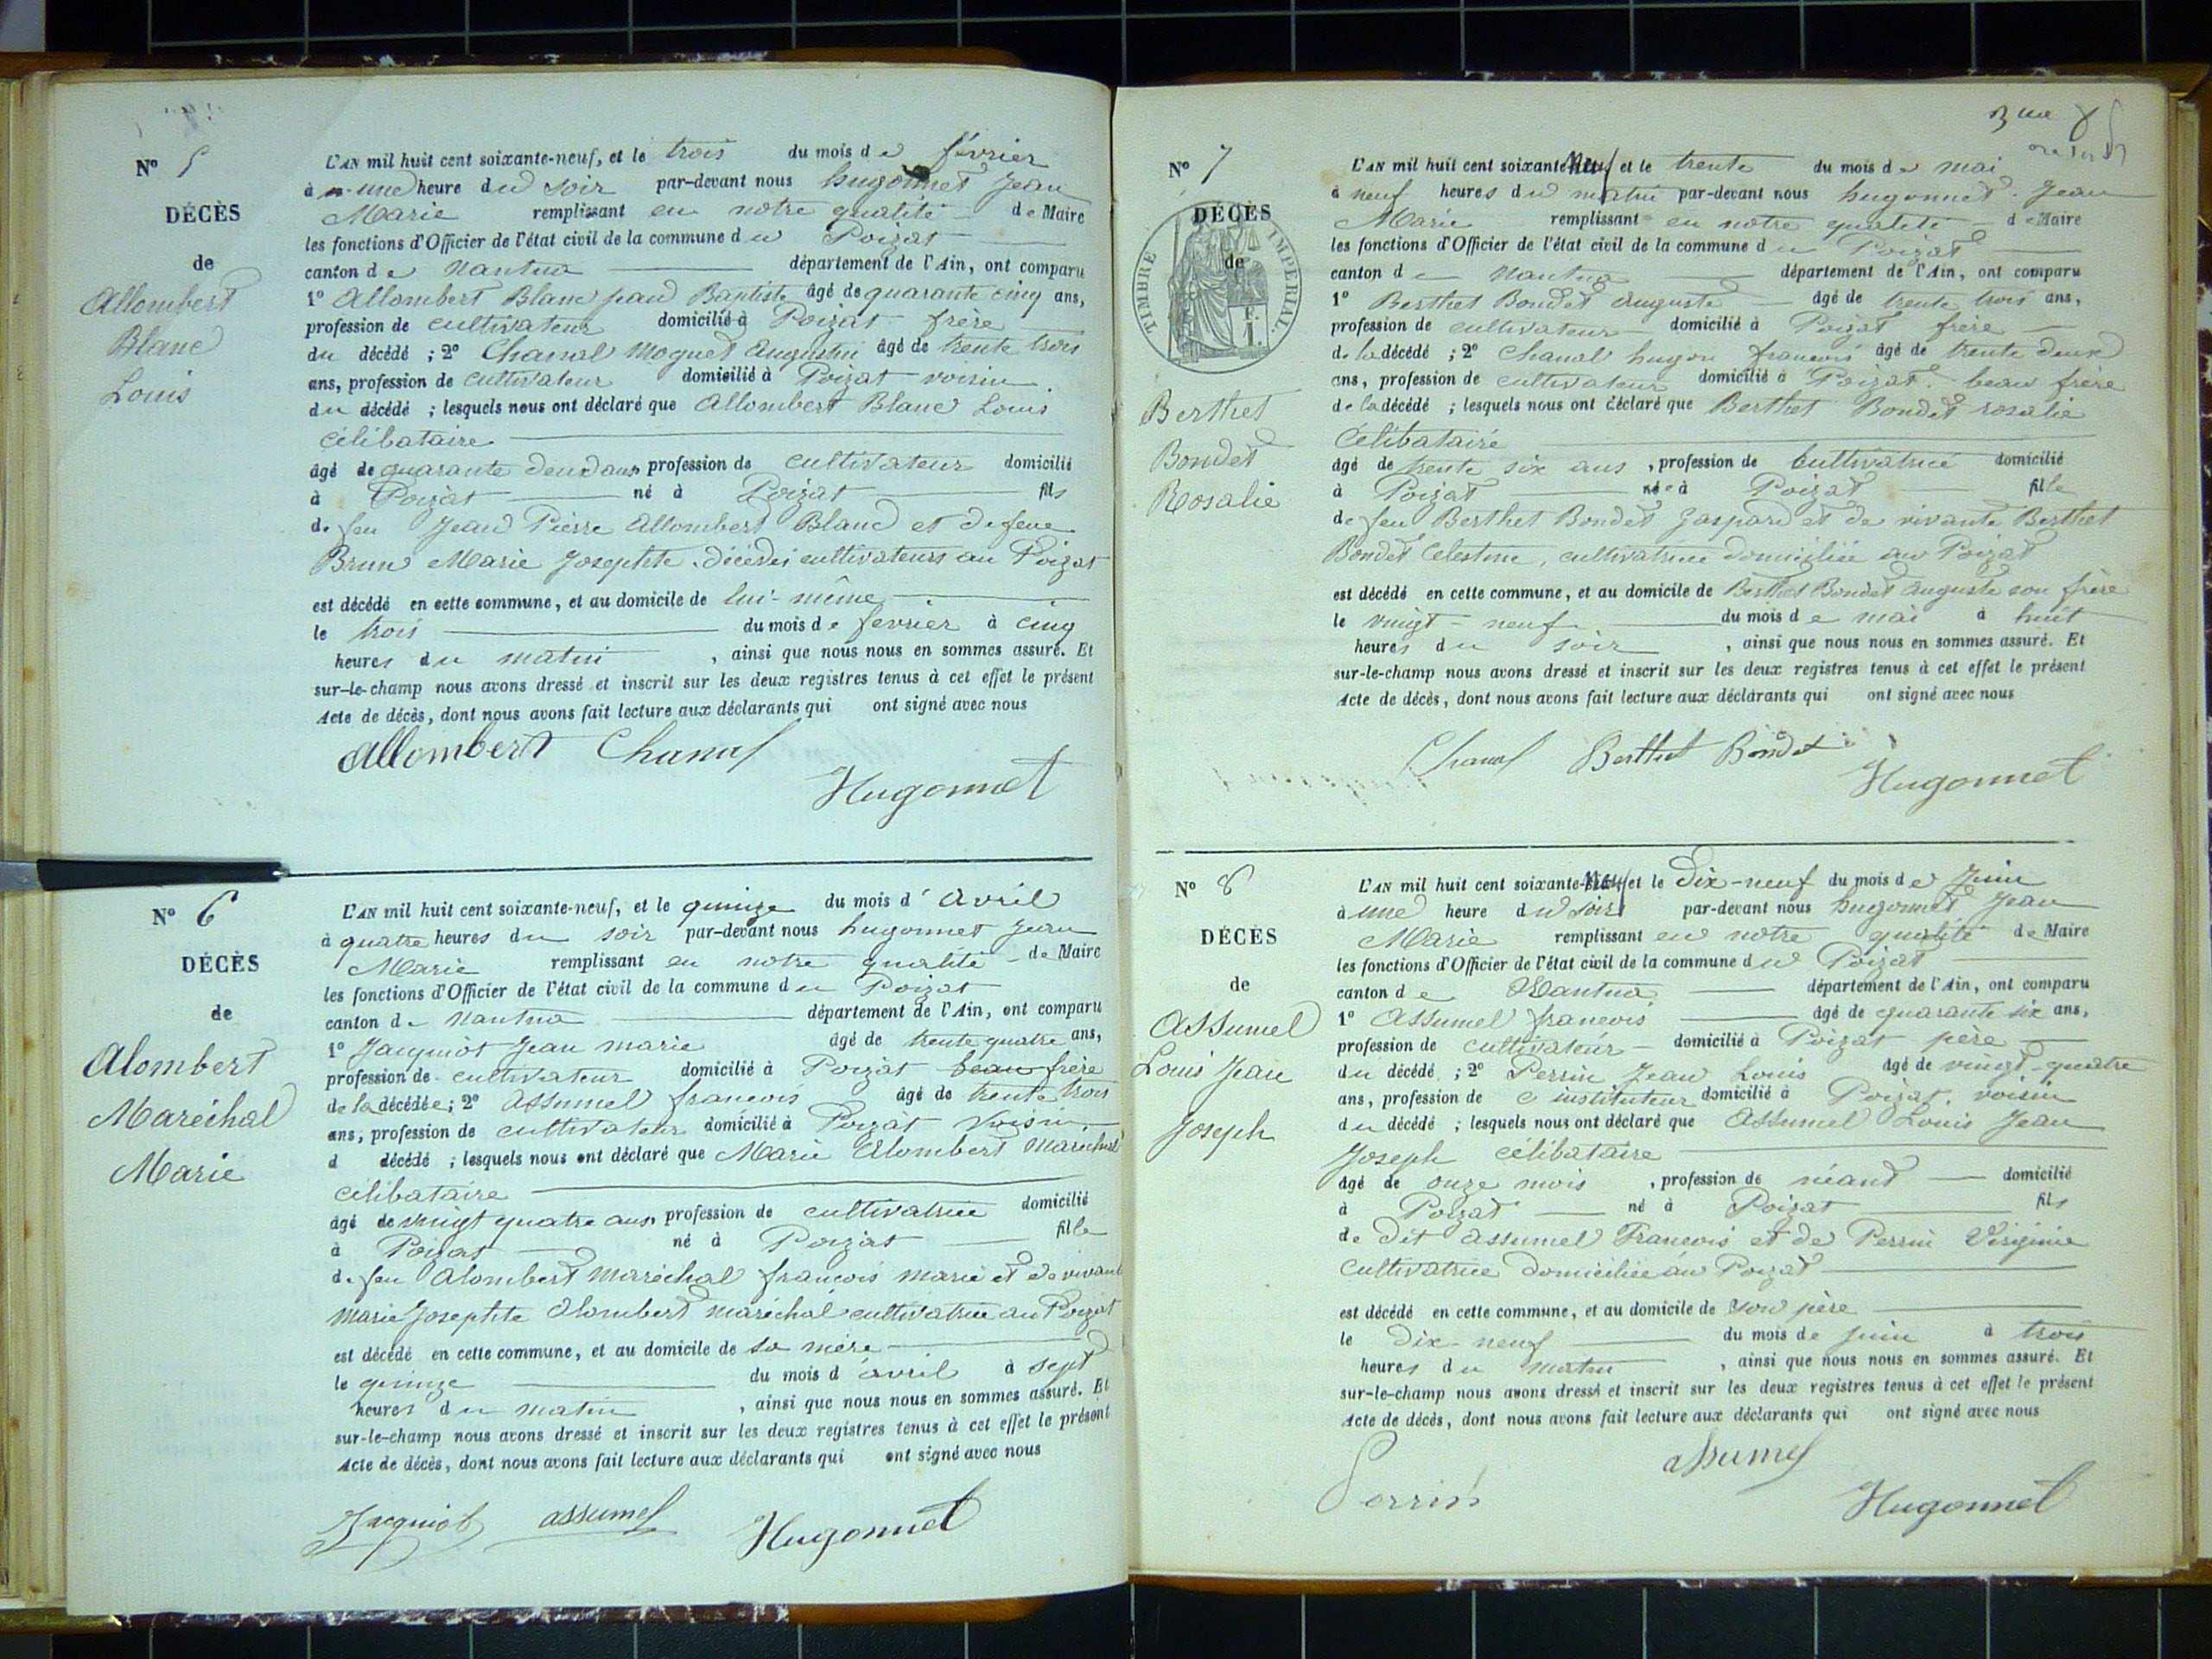 N° 5
DÉCÈS
de
Allombert
Blanc
Louis
L'AN mil huit cent soixante-neuf, et le trois du mois de février
à une heure du soir par-devant nous hugonnet Jean
Marie remplissant en notre qualité de Maire
les fonctions d'Officier de l'état civil de la commune du Poizat
canton de Nantua département de l'Ain, ont comparu
1° Allombert Blanc jean Baptiste âgé de quarante cinq ans,
profession de cultivateur domicilié à Poizat frère
du décédé ; 2° Chanal Moguet Augustin âgé de trente trois
ans, profession de cultivateur domicilié à Poizat voisin
du décédé ; lesquels nous ont déclaré que Allombert Blanc Louis
Célibataire
âgé de quarante deux ans profession de cultivateur domicilié
à Poizat né à Poizat fils
de feu Jean Pierre Allombert Blanc et de feue
Brun Marie Josephte. décédés cultivateurs au Poizat
est décédé en cette commune, et au domicile de lui-même
le trois du mois de fevrier à cinq
heures du matin , ainsi que nous nous en sommes assuré. Et
sur-le-champ nous avons dressé et inscrit sur les deux registres tenus à cet effet le présent
Acte de décès, dont nous avons fait lecture aux déclarants qui ont signé avec nous
Allombert Chanal
Hugonnet
N° 6
DÉCÈS
de
Alombert
Maréchal
Marie
L'AN mil huit cent soixante-neuf, et le quinze du mois d'Avril
à quatre heures du soir par-devant nous hugonnet Jean
Marie remplissant en notre qualité de Maire
les fonctions d'Officier de l'état civil de la commune du Poizat
canton de Nantua département de l'Ain, ont comparu
1° Jacquiot Jean marie âgé de trente quatre ans,
profession de cultivateur domicilié à Poizat beau frère
de la décédée ; 2° Assumel francois âgé de trente trois
ans, profession de cultivateur domicilié à Poizat Voisin
d décédé ; lesquels nous ont déclaré que Marie Alombert Maréchal
célibataire
âgé de vingt quatre ans, profession de cultivatrice domicilié
à Poizat né à Poizat fille
de feu Alombert Maréchal francois marie et de vivant
Marie Josephte Alombert maréchal cultivatrice au Poizat
est décédé en cette commune, et au domicile de sa mère
le quinze du mois d'avril à sept
heures du matin , ainsi que nous nous en sommes assuré. Et
sur-le-champ nous avons dressé et inscrit sur les deux registres tenus à cet effet le présent
Acte de décès, dont nous avons fait lecture aux déclarants qui ont signé avec nous
Jacquiot assumel
Hugonnet
N° 7
DÉCÈS
de
TIMBRE IMPÉRIAL.
1 F.
Berthet
Bondet
Rosalie
L'AN mil huit cent soixante Neuf et le trente du mois de mai
à neuf heures du matin par-devant nous hugonnet Jean
Marie remplissant en notre qualité de Maire
les fonctions d'Officier de l'état civil de la commune du Poizat
canton de Nantua département de l'Ain, ont comparu
1° Berthet Bondet Auguste âgé de trente trois ans,
profession de cultivateur domicilié à Poizat frère
de la décédé ; 2° Chanal hugon francois âgé de trente deux
ans, profession de cultivateur domicilié à Poizat beau frère
de la décédé ; lesquels nous ont déclaré que Berthet Bondet rosalie
Célibataire
âgé de trente six ans , profession de Cultivatrice domicilié
à Poizat née à Poizat fille
de feu Berthet Bondet Gaspard et de vivante Berthet
Bondet Celestine, cultivatrice domiciliée au Poizat
est décédé en cette commune, et au domicile de Berthet Bondet Auguste son frère
le vingt-neuf du mois de mai à huit
heures du soir , ainsi que nous nous en sommes assuré. Et
sur-le-champ nous avons dressé et inscrit sur les deux registres tenus à cet effet le présent
Acte de décès, dont nous avons fait lecture aux déclarants qui ont signé avec nous
Chanal Berthet Bondet
Hugonnet
N° 8
DÉCÈS
de
Assumel
Louis Jean
Joseph
L'AN mil huit cent soixante-Neuf et le Dix-neuf du mois de Juin
à une heure du soir par-devant nous hugonnet Jean
Marie remplissant en notre qualité de Maire
les fonctions d'Officier de l'état civil de la commune du Poizat
canton de Nantua département de l'Ain, ont comparu
1° Assumel francois âgé de quarante six ans,
profession de cultivateur domicilié à Poizat père
du décédé ; 2° Perrin Jean Louis âgé de vingt-quatre
ans, profession de instituteur domicilié à Poizat. voisin
du décédé ; lesquels nous ont déclaré que Assumel Louis Jean
Joseph célibataire
âgé de onze mois , profession de néant domicilié
à Poizat né à Poizat fils
de Dit Assumel Francois et de Perrin Virginie
Cultivatrice Domiciliée au Poizat
est décédé en cette commune, et au domicile de son père
le Dix-neuf du mois de juin à trois
heures du matin , ainsi que nous nous en sommes assuré. Et
sur-le-champ nous avons dressé et inscrit sur les deux registres tenus à cet effet le présent
Acte de décès, dont nous avons fait lecture aux déclarants qui ont signé avec nous
Perrin assumel
Hugonnet